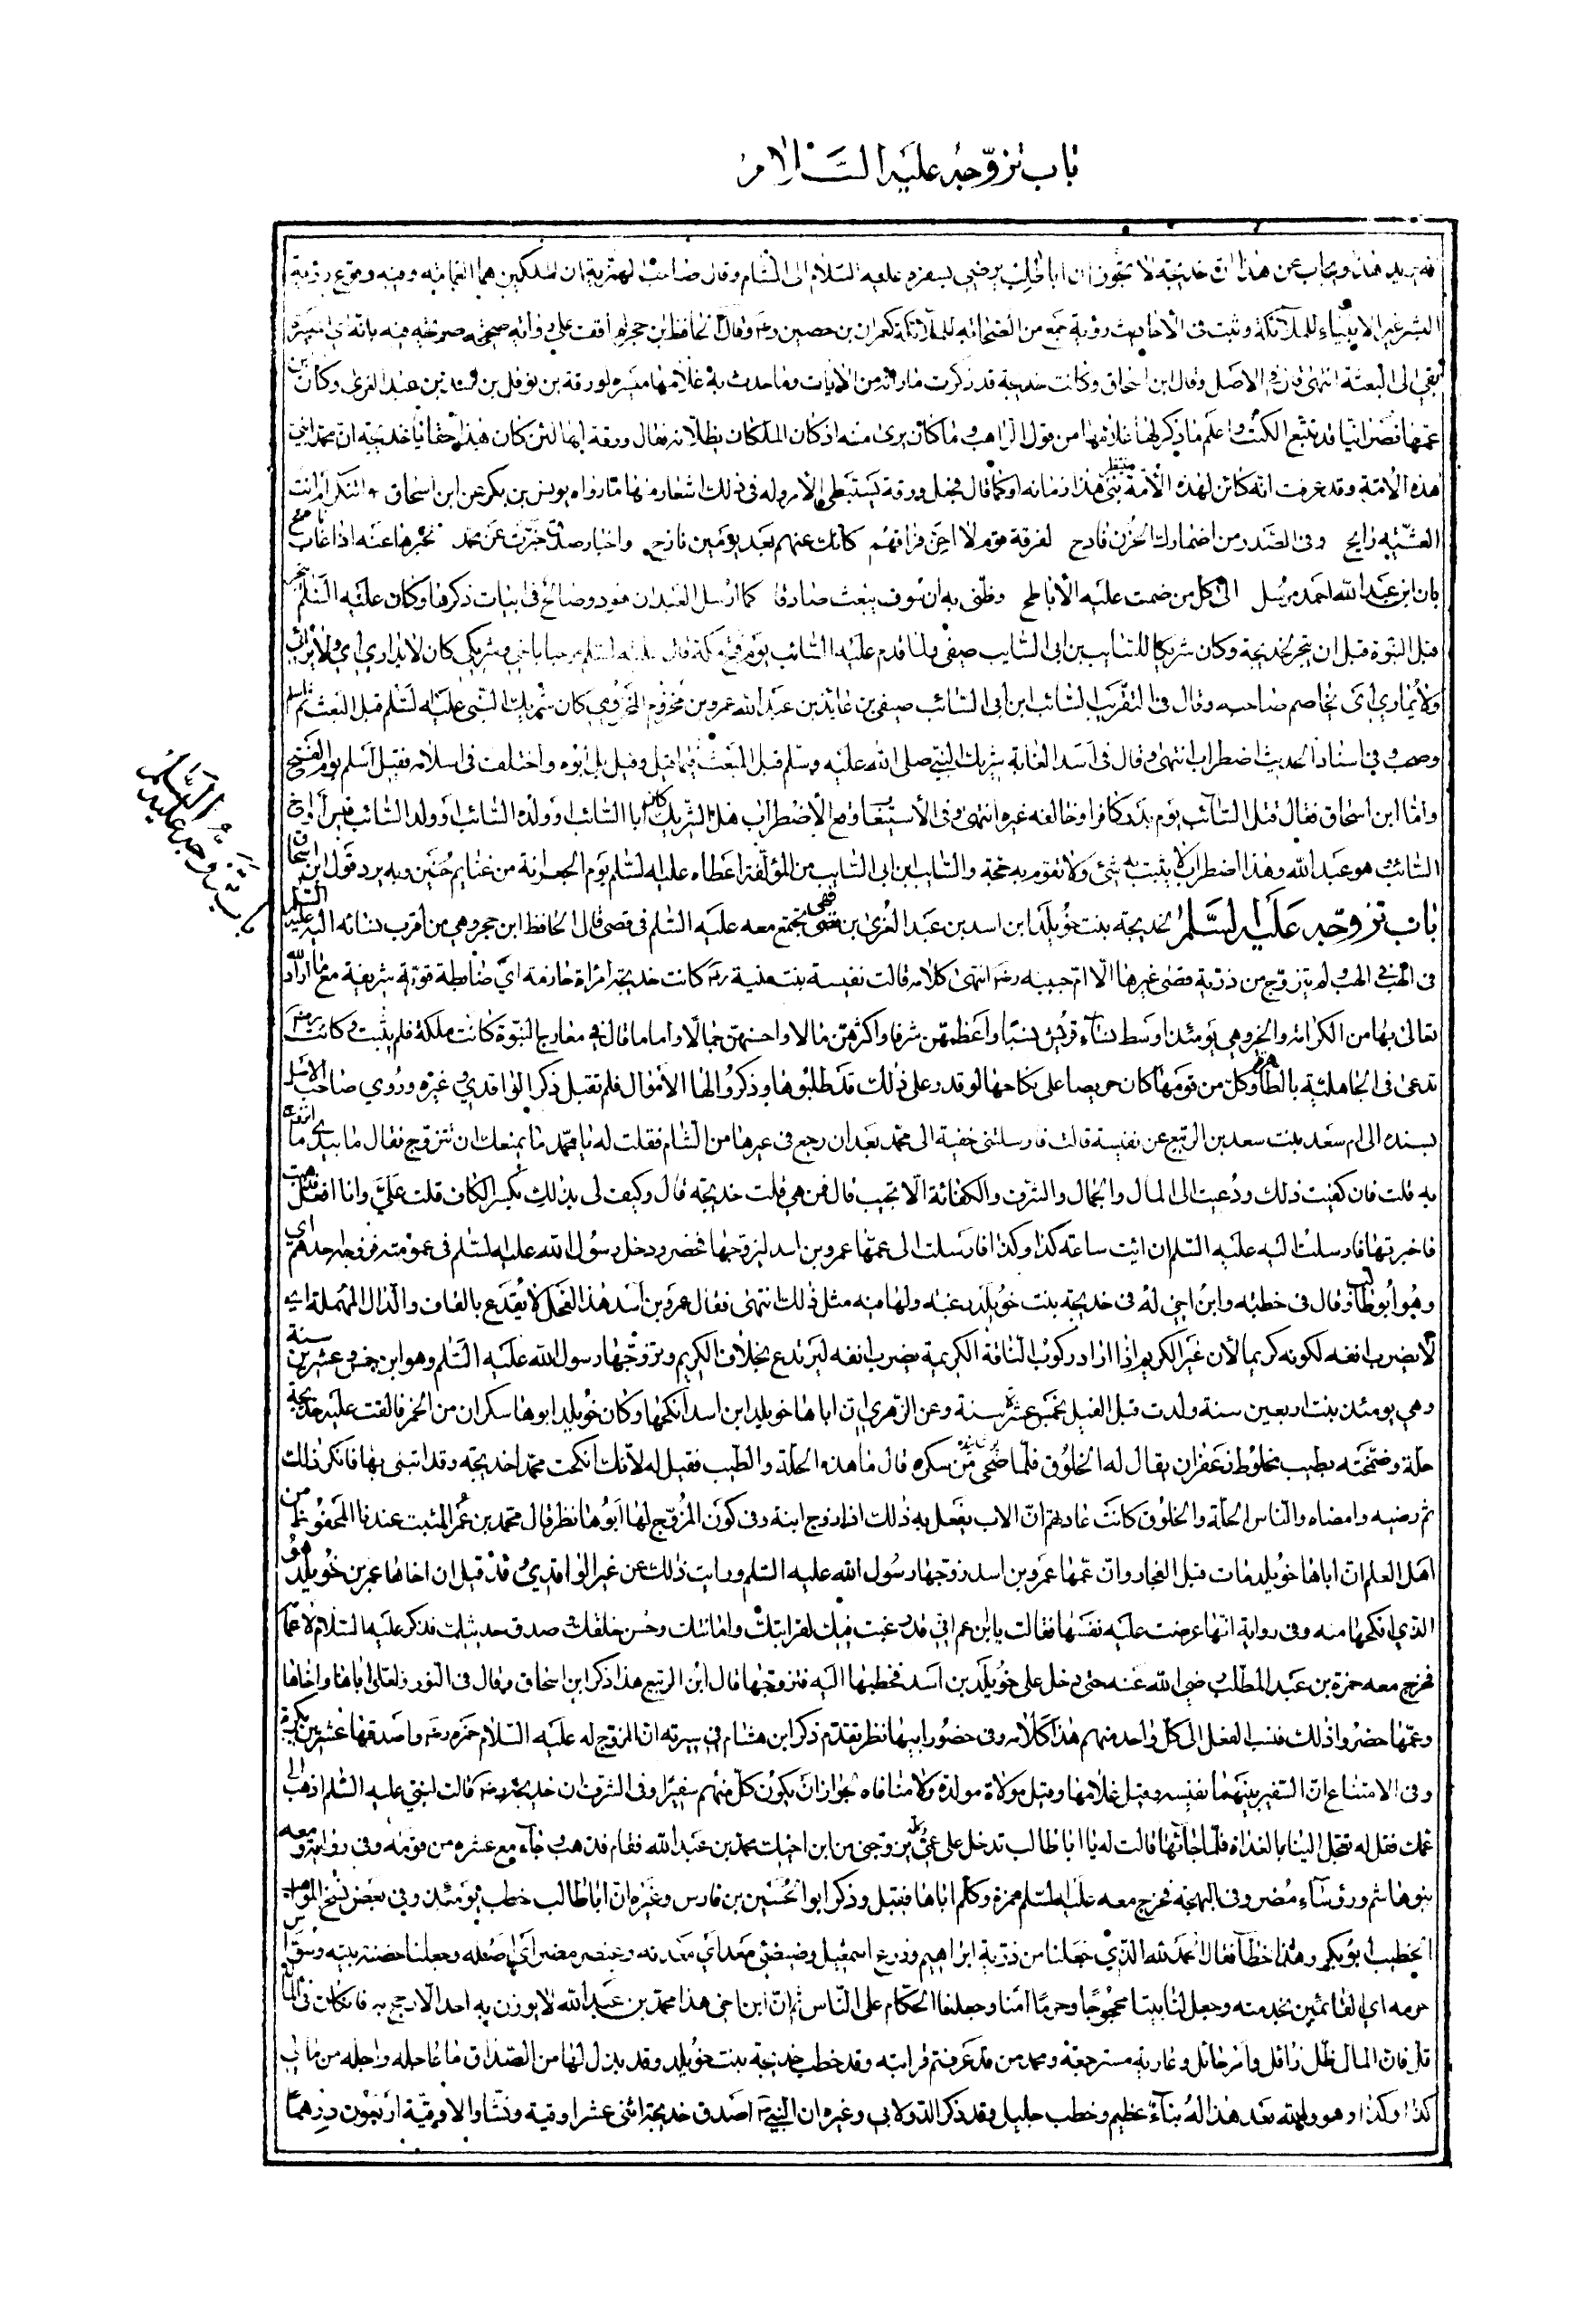 باب تزوّجه عليه السّلام
فه يريد هذا ويجاب عن هذا ان خديجة لا تجوز ان ابا طالب يرضى بسفره عليه السلام الى الشام وقال صاحب الهمزية ان الملكين هما الغمامة وفيه وقوع رؤية
البشر غير الانبياء للملائكة وثبت فى الاحاديث رؤية جمع من الصحابة للملائكة كعمران بن حصين رضه وقال الحافظ ابن حجر لم اقف على رواية صحيحة صريحة فيه بانه اى ميسرة
بقى الى البعثة انتهى قال فى الاصل وقال ابن اسحاق وكانت خديجة قد ذكرت ما رأته من الايات وما حدث به غلامها ميسره لورقة بن نوفل بن اسد بن عبد العزى وكان ابن
عمها نصرانيا قد تتبع الكتب واعلم ما ذكر لها غلامها من قول الراهب وما كان يرى منه اذ كان الملكان يظلانه فقال ورقة ايها لئن كان هذا حقا يا خديجة ان محمدا نبى
هذه الامة وقد عرفت انه كائن لهذه الامة نبى منتظر هذا زمانه او كما قال فجعل ورقة يستبطى الامر وله فى ذلك اشعار منها ما رواه يونس بن بكر عن ابن اسحاق اتبكر ام انت
العشية رايح وفى الصدر من اضمارك الحزن قادح لفرقة قوم لا احب فراقهم كانك عنهم بعد يومين نازح واخبار صدق خبرت عن محمد يخبرها عنه اذا غاب ناصح
بان ابن عبد الله احمد مرسل الى كل من ضمت عليه الاباطح وظنى به ان سوف يبعث صادقا كما ارسل العبدان هود وصالح فى ابيات ذكرها وكان عليه السلم
قبل النبوة قبل ان يتجر لخديجة وكان شريكا للسايب بن ابى السايب صيفى ولما قدم عليه السائب يوم فتح مكة قال عليه السلم مرحبا باخى وشريكى كان لا يدارى اى لا يرائى
ولا يمارى اى يخاصم صاحبه وقال فى التقريب السائب ابن ابى السائب صيفى بن عايذ بن عبد الله عمرو بن مخزوم المخزومى كان شريك النبى عليه السلم قبل البعث ثم اسلم
وصحب وفى اسناد الحديث اضطراب انتهى وقال فى اسد الغابة شريك النبى صلى الله عليه وسلم قبل المبعث فيما قيل وقيل بل ابوه واختلف فى اسلامه فقيل اسلم يوم الفتح
واما ابن اسحاق فقال قتل السائب يوم بدر كافرا وخالفه غيره انتهى وفى الاستيعاب وقع الاضطراب هل الشريك كان ابا السائب او ولده السائب او ولد السائب قيس او اخى
السائب هو عبد الله وهذا اضطراب لا يثبت به شئ ولا تقوم به حجة والسايب ابن ابى السايب من المؤلفة اعطاه عليه السلم يوم الجعرانة من غنايم حنين وبه يرد قول ابن اسحاق
باب تزوجه عليه السلم خديجة بنت خويلد ابن اسد بن عبد العزى بن قصى فهى تجتمع معه عليه السلم فى قصى قال الحافظ ابن حجر وهى من اقرب نسائه اليه عليه السلم
فى النسب ولم يتزوج من ذرية قصى غيرها الا ام حبيبه رضه انتهى كلامه قالت نفيسة بنت منية رضه كانت خديجة امراة حازمة اى ضابطة قوية شريفة مع ما اراد الله
تعالى بها من الكرامة والخير وهى يومئذ اوسط نساء قريش نسبا واعظمهن شرفا واكثرهن مالا واحسنهن جمالا واما ما قال فى معارج النبوة كانت ملكة فلم يثبت وكانت رضه
تدعى فى الجاهلية بالطاهرة وكل من قومها كان حريصا على نكاحها لو قدر على ذلك قد طلبوها وذكروا لها الاموال فلم تقبل ذكر الواقدى وغيره وروى صاحب الاصل
بسنده الى ام سعد بنت سعد بن الربيع عن نفيسة قالت فارسلتنى خفية الى محمد بعد ان رجع فى عيرها من الشام فقلت له يا محمد ما يمنعك ان تتزوج فقال ما بيدى ما اتزوج
به قلت فان كفيت ذلك ودعيت الى المال والجمال والشرف والكفائة الا تجيب قال فمن هى قلت خديجة قال وكيف لى بذلك بكسر الكاف قلت علىّ وانا افعل فذهبت
فاخبرتها فارسلت اليه عليه السلم ان ائت ساعة كذا وكذا فارسلت الى عمها عمرو بن اسد ليزوجها فحضر ودخل رسول الله عليه السلم فى عمومته فزوجه احدهم اى
وهو ابو طالب وقال فى خطبه وابن اخى له فى خديجة بنت خويلد رغبة ولها فيه مثل ذلك انتهى فقال عمرو بن اسد هذا الفحل لا يقدع بالقاف والدال المهملة اى
لا يضرب انفه لكونه كريما لان غير الكريم اذا اراد ركوب الناقة الكريمة يضرب انفه ليرتدع بخلاف الكريم وتزوجها رسول الله عليه السلم وهو ابن خمس وعشرين سنة
وهى يومئذ بنت اربعين سنة ولدت قبل الفيل بخمس عشرة سنة وعن الزهرى ان اباها خويلد ابن اسد انكحها وكان خويلد ابوها سكران من الخمر فالقت عليه خديجة
حلة وضمخته بطيب مخلوط زعفران يقال له الخلوق فلما صحى من سكره قال ما هذه الحلة والطيب فقيل له لانك انكحت محمدا خديجة وقد ابتنى بها فانكر ذلك
ثم رضيه وامضاه والناس الحلة والخلوق كانت عادتهم ان الاب يفعل به ذلك اذا زوج ابنة وفى كون المزوج لها ابوها نظر قال محمد بن عمر المثبت عندنا المحفوظ من
اهل العلم ان اباها خويلد مات قبل الفجار وان عمها عمرو بن اسد زوجها رسول الله عليه السلم ورايت ذلك عن غير الواقدى وقد قيل ان اخاها عمر بن خويلد هو
الذى انكحها منه وفى رواية انها عرضت عليه نفسها فقالت يا ابن عم انى قد رغبت فيك لقرابتك وامانتك وحسن خلقك وصدق حديثك فذكر عليه السلام لاعمامه
فخرج معه حمزة بن عبد المطلب رضى الله عنه حتى دخل على خويلد بن اسد فخطبها اليه فتزوجها قال ابن الربيع هذا ذكر ابن اسحاق وقال فى النور ولعل اباها واخاها
وعمها حضروا ذلك فنسب الفعل الى كل واحد منهم هذا كلامه وفى حضور ابيها نظر تقدم ذكر ابن هشام فى سيرته ان المزوج له عليه السلام حمزه رضه واصدقها عشرين بكرة
وفى الامتاع ان السفير بينهما نفيسه وقيل غلامها وقيل مولاة مولدة ولا منافاه لجواز ان يكون كل منهم سفيرا وفى الشرف ان خديجة رضه قالت للنبى عليه السلم اذهب الى
عمك فقل له تعجل الينا بالغداة فلما جاء ثها قالت له يا ابا طالب تدخل على عمى فكلمه يزوجنى من ابن اخيك محمد بن عبد الله فقام فذهب وجاء مع عشره من قومه وفى رواية ومعه
بنو هاشم ورؤساء مضر وفى البهجة فخرج معه عليه السلم حمزة وكلم اباها فقبل وذكر ابو الحسين بن فارس وغيره ان ابا طالب خطب يومئذ وفى بعض نسخ المواهب
الخطيب ابو بكر وهذا خطأ فقال الحمد لله الذى جعلنا من ذرية ابراهيم وزرع اسمعيل وضئضئى معد اى معدنه وعنصر مضر اى اصله وجعلنا حضنة بيته وسواس
حرمه اى القائمين بخدمته وجعل لنا بيتا محجوجا وحرما امنا وجعلنا الحكام على الناس ثم ان ابن اخى هذا محمد بن عبد الله لا يوزن به احد الا رجح به فان كان فى المال
قل فان المال ظل زائل وامر حائل وعارية مسترجعة ومحمد من قد عرفتم قرابته وقد خطب خديجة بنت خويلد وقد بذل لها من الصداق ما عاجله واجله من مالى
كذا وكذا وهو والله بعد هذا له نبأ عظيم وخطب جليل وقد ذكر الدولابى وغيره ان النبى عم اصدق خديجة اثنى عشر اوقية ونشا والاوقية اربعون درهما
باب تزوجه عليه السلم